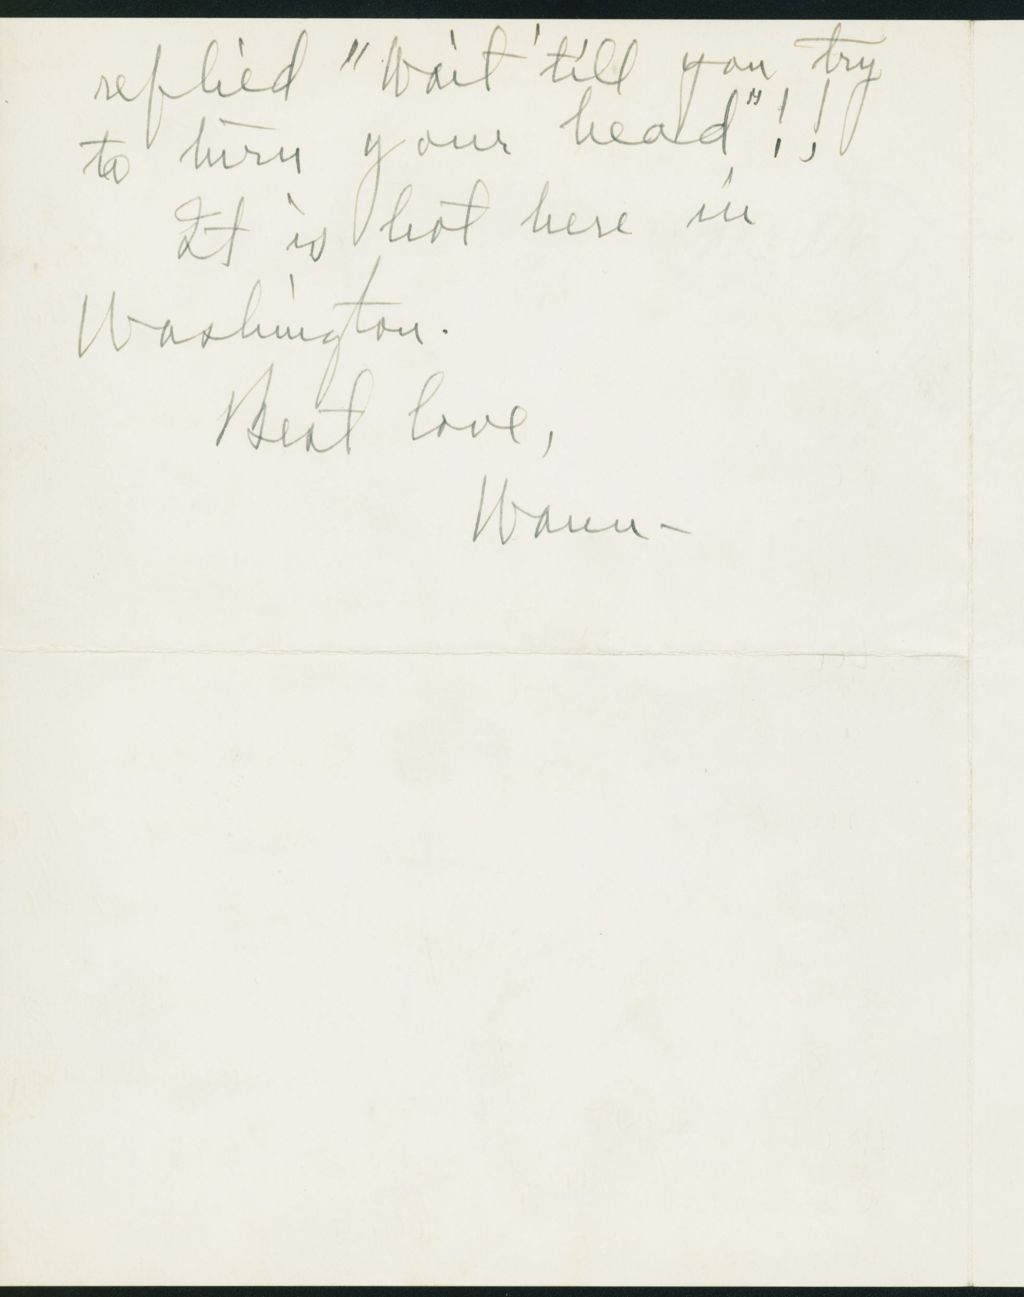 replied "Wait 'till you try
to turn your head"!!
It is hot here in
Washington.
Best love,
Wann—